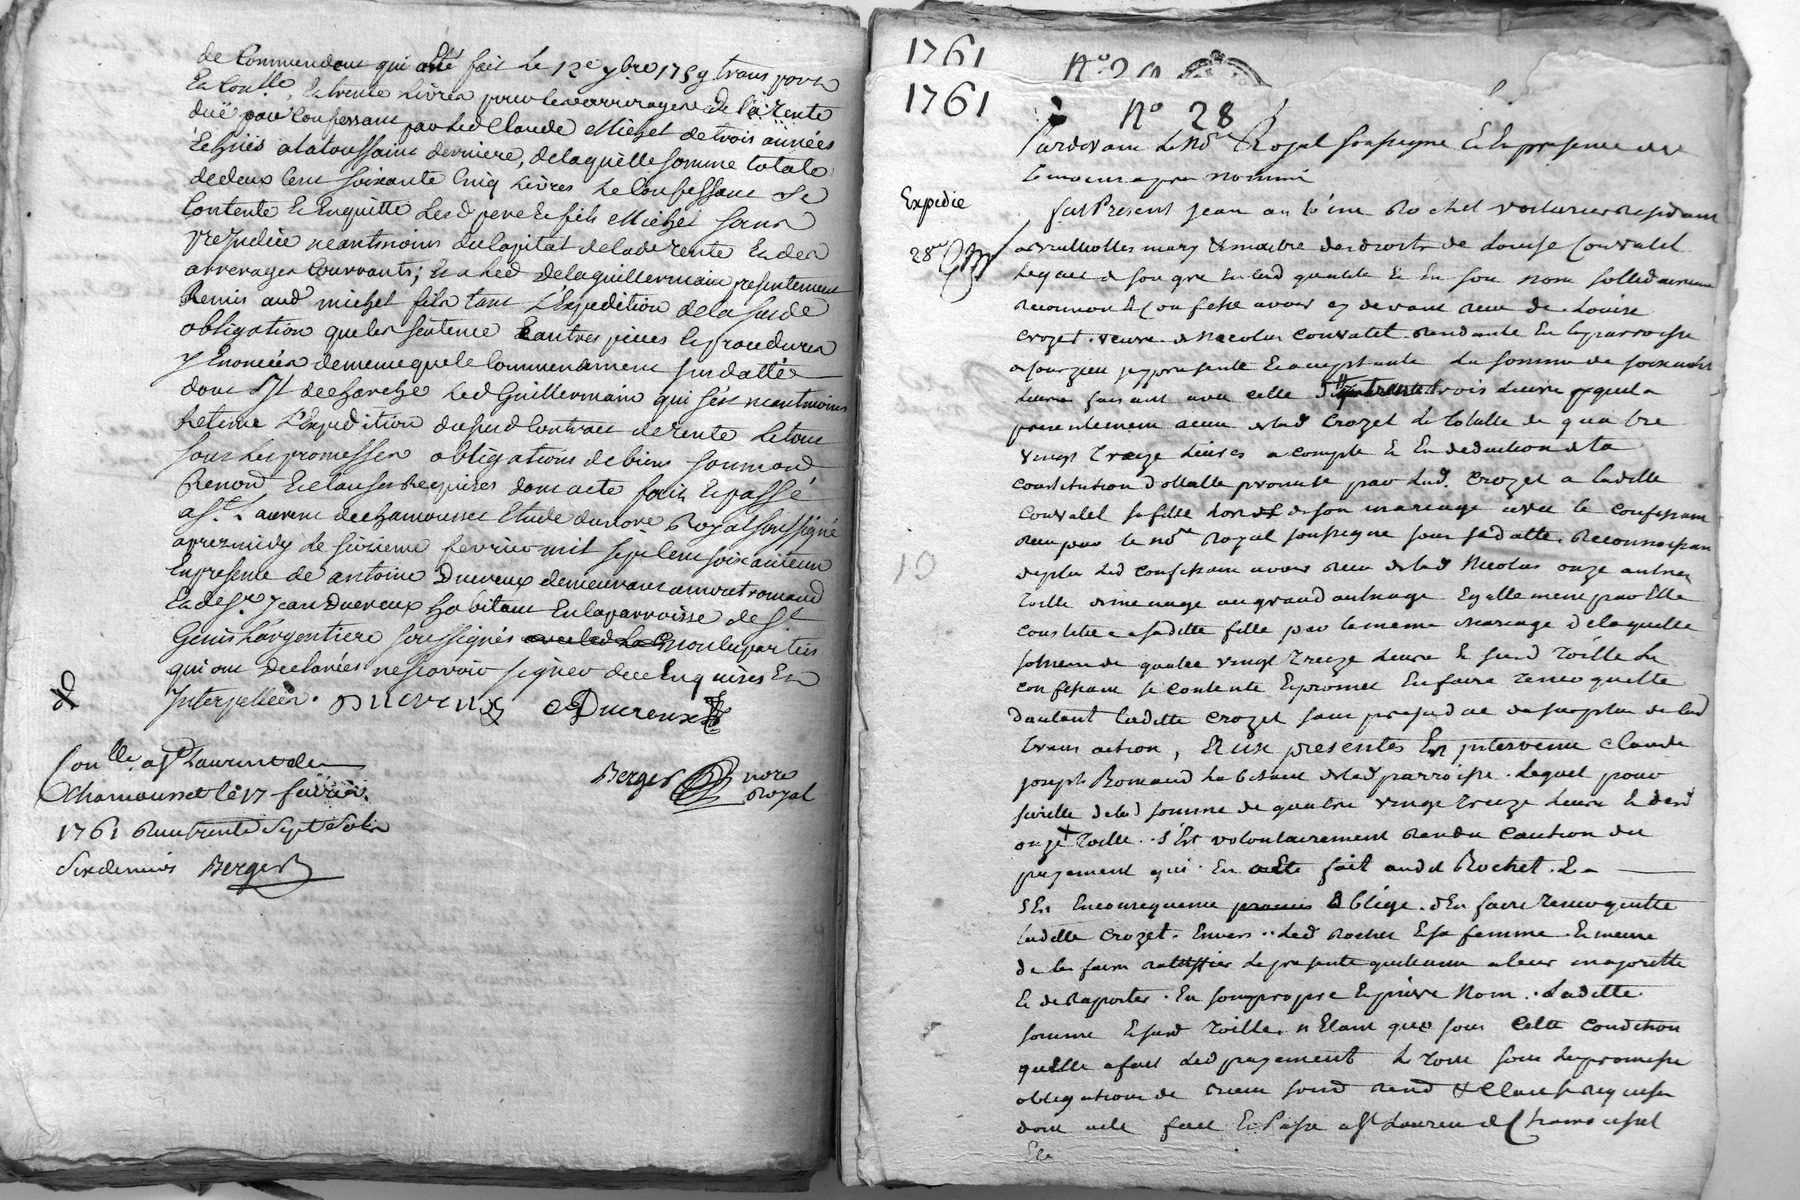 de Commendem qui a esté fait Le 12e 9bre 1759 transporté
En Conlle, Et trente Livres pour les arrerages de la Rente
duë par Confessant par led Claude Michel de trois années
Echuës a la toussaint derniere, de laquelle somme totale
de deux Cent soixante Cinq Livres Le Confessant se
Contente Et Enquitte Lesd pere Et fils Michel sans
prejudice neantmoins du Capital de lade rente Et des
arrerages Courrants; Et a led de la guillermain presentement
Remis aud michel fils tant L'Expedition de la susde
obligation que les sentence Et autres pieces Et procedures
y Enoncées de meme que le Commendement susdatté
dont Il decharge led Guillermain qui s'est neantmoins
Retenu L'Expedition dususd Contract de rente Le tout
sous Les promesses obligations de biens soumond
Renond Et clauses Requises dont acte fait Et passé
a St Laurent de chamousset Etude du nore Royal soussigné
apres midy Le sixieme fevrier mil sept Cent soixante un
En presence de antoine Ducreux demeurant amontromand
Et de Sr Jean Ducreux habitant En la parroisse de St
Genis L'argentiere soussignés non les parties
qui ont Declarées ne sçavoir signer de ce Enquises Et
Interpellées. Ducreux a Ducreux
Conlle a St Laurent de
Chamousset le 17 fevrier
1761 Reçu trente sept sols
six deniers Berger
Berger nore
Royal
1761
1761
No 28
Pardevant Le Nore Royal soussigné Et En presence des
temoins apres nommés
Expedie
28e
fut Present Jean antoine Rochet voiturier Residant
a mary Et maitre des droits de Louise Couvalet
Lequel de son gre En lad qualité Et En son nom sollidairement
reconnoit Et Confesse avoir cy devant reçu de Louise
Crozet veuve de Nicolas Couvalet Residante En la parroisse
presente Et acceptante La somme de soixante
Livres faisant avec celle de trois Livres qu'il a
presentement reçu de lad Crozet Le totalle de quatre
vingt Treize Livres a compte Et En deduction de la
constitution dotalle promise par lad. Crozet a ladite
Couvalet sa fille Lors de son mariage avec le confessant
Reçu par le nore Royal soussigné sous sa datte. Reconnoissant
de plus Led confessant avoir reçu de lad Nicolas onze autnes
Toille de menage au grand aulnage Egallement par Elle
constituée a sadite fille par le meme mariage de laquelle
somme de quatre vingt Treize Livres Et susd Toille Le
confessant se contente Et promet En faire tenir quitte
d'autant ladite Crozet sans prejudice du surplus de lad
Transaction, Et aux presentes Est intervenu Claude
joseph Romand habitant de lad parroisse. Lequel pour
sureté de lad somme de quatre vingt treize Livres Et desd
onze Toille. s'Est volontairement Rendu Caution du
payement qui En a esté fait aud Rochet. Et a
s'Est En consequence obligé d'En faire tenir quitte
ladite Crozet Envers led Rochet Et sa femme Et meme
de les faire rattiffier La presente quittance a leur majorité
Et de Raporter En son propre Et privé Nom. Ladite
somme Et susd Toille n'Etant que sous Cette Condition
qu'elle a fait led payement Le tout sous Les promesse
obligations de biens soumd Rend & Clauses requises
dont acte fait Et Passé a St Laurent de Chamousset